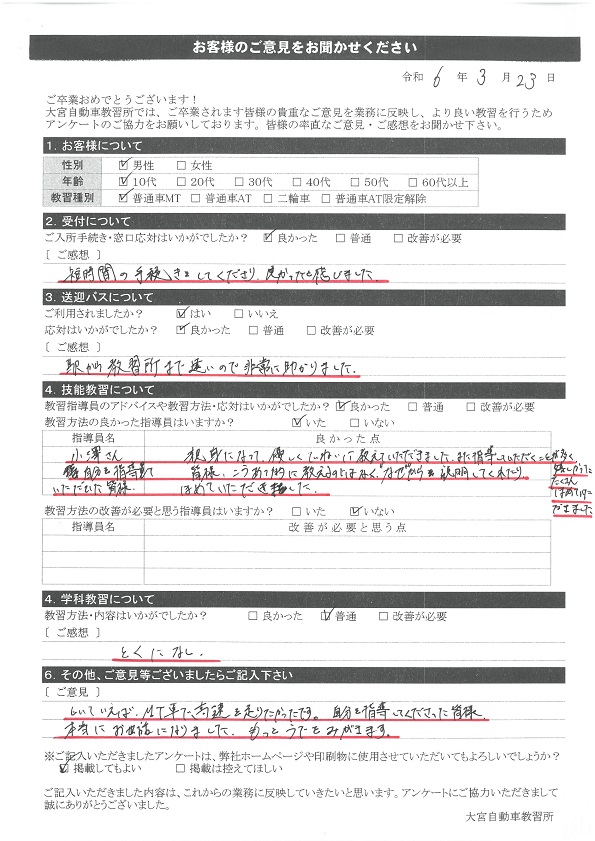 お客様のご意見をお聞かせください
令和 6 年 3 月 23 日
ご卒業おめでとうございます！
大宮自動車教習所では、ご卒業されます皆様の貴重なご意見を業務に反映し、より良い教習を行うため
アンケートのご協力をお願いしております。皆様の率直なご意見・ご感想をお聞かせ下さい。
1. お客様について
性別 ☑ 男性 □ 女性
年齢 ☑ 10代 □ 20代 □ 30代 □ 40代 □ 50代 □ 60代以上
教習種別 ☑ 普通車MT □ 普通車AT □ 二輪車 □ 普通車AT限定解除
2. 受付について
ご入所手続き・窓口応対はいかがでしたか？ ☑ 良かった □ 普通 □ 改善が必要
[ ご感想 ]
短時間の手続きをしてくださり、良かったと感じました。
3. 送迎バスについて
ご利用されましたか？ ☑ はい □ いいえ
応対はいかがでしたか？ ☑ 良かった □ 普通 □ 改善が必要
[ ご感想 ]
駅から教習所まで遠いので非常に助かりました。
4. 技能教習について
教習指導員のアドバイスや教習方法・応対はいかがでしたか？ ☑ 良かった □ 普通 □ 改善が必要
教習方法の良かった指導員はいますか？ ☑ いた □ いない
指導員名 良かった点
小澤さん 親身になって、優しくていねいに教えていただきました。また指導していただくことが多く
自分を指導して 皆様、こうあて的に教えるのではなく、"なぜ"からを説明してくれたり
いただいた皆様 ほめていただき
嬉しかった
たくさん
ほめていただ
きました
教習方法の改善が必要と思う指導員はいますか？ □ いた ☑ いない
指導員名 改善が必要と思う点
4. 学科教習について
教習方法・内容はいかがでしたか？ □ 良かった ☑ 普通 □ 改善が必要
[ ご感想 ]
とくになし。
6. その他、ご意見等ございましたらご記入下さい
[ ご意見 ]
しいていえば、MT車で高速を走りたかったです。自分を指導してくださった皆様、
本当にお世話になりました。もっとうでをみがきます。
※ご記入いただきましたアンケートは、弊社ホームページや印刷物に使用させていただいてもよろしいでしょうか？
☑ 掲載してもよい □ 掲載は控えてほしい
ご記入いただきました内容は、これからの業務に反映していきたいと思います。アンケートにご協力いただきまして
誠にありがとうございました。
大宮自動車教習所